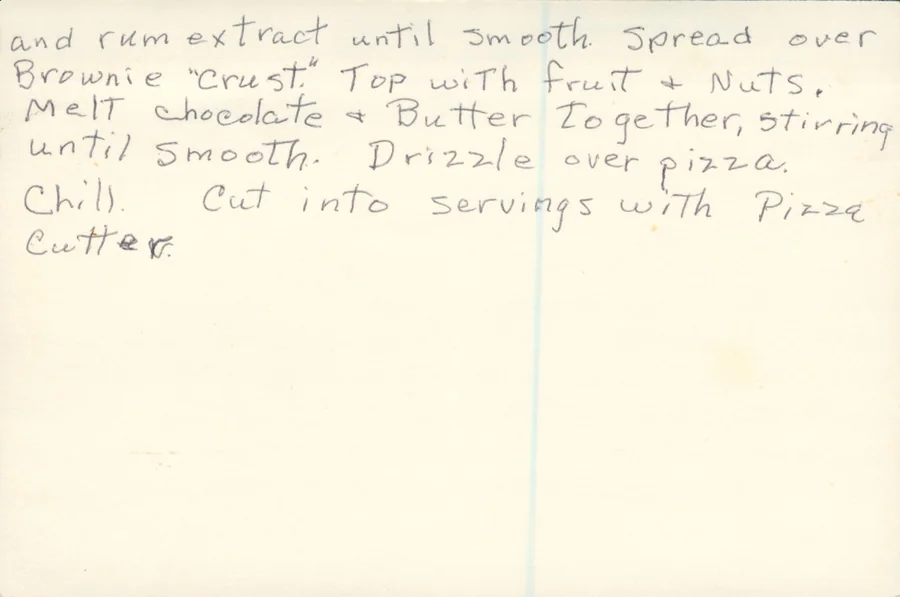 and rum extract until smooth. Spread over
Brownie "Crust." Top with fruit & Nuts.
Melt chocolate & Butter Together, stirring
until smooth. Drizzle over pizza.
Chill. Cut into servings with Pizza
Cutter.